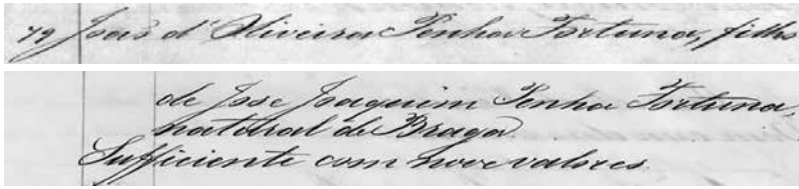 79 João d'Oliveira Penha Fortuna, filho
de Jose Joaquim Penha Fortuna,
natural de Braga.
Sufficiente com nove valores.